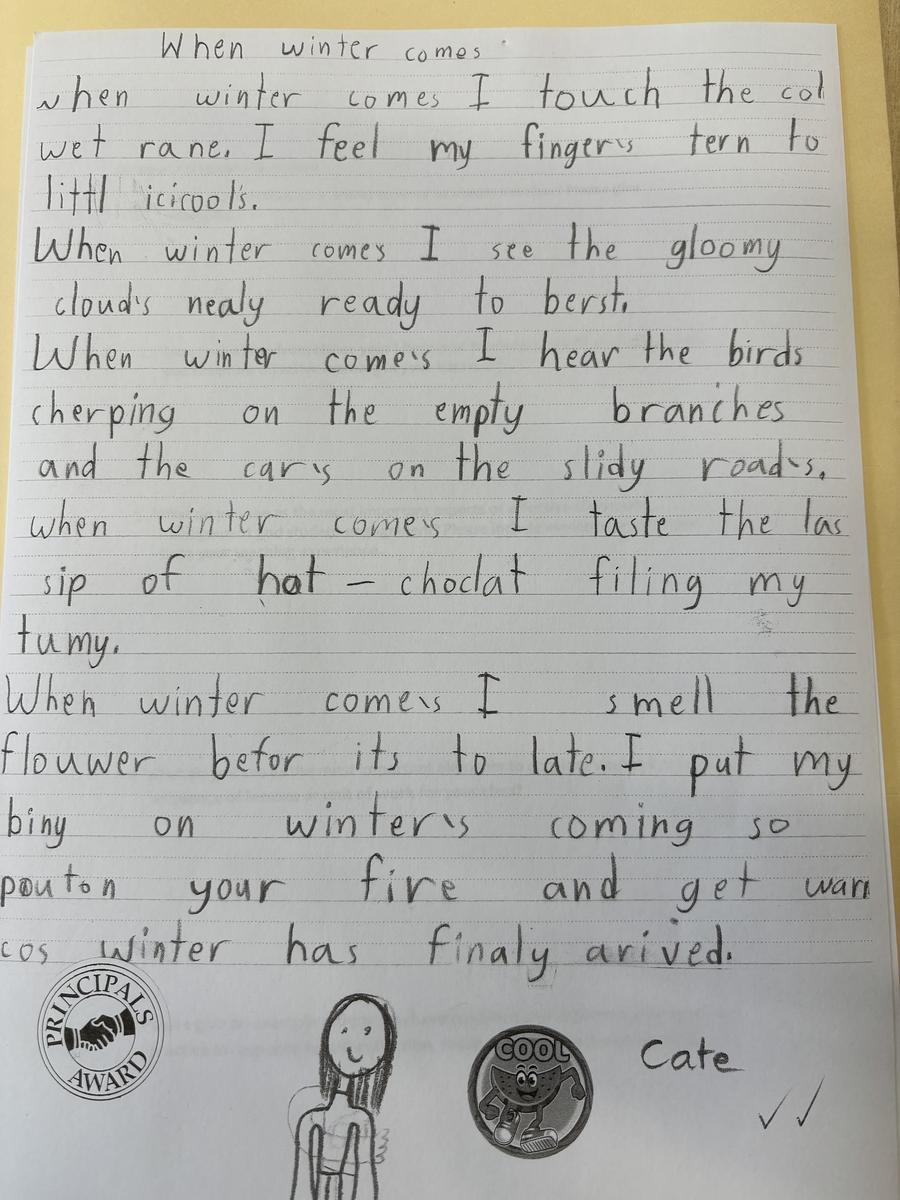 When winter comes
when winter comes I touch the col
wet rane. I feel my finger's tern to
littl icicool's.
When winter comes I see the gloomy
cloud's nealy ready to berst.
When winter come's I hear the birds
cherping on the empty branches
and the car's on the slidy road's.
when winter come's I taste the las
sip of hot - choclat filing my
tumy.
When winter come's I smell the
flouwer befor its to late. I put my
biny on winter's coming so
pouton your fire and get warm
cos winter has finaly arived.
PRINCIPALS AWARD
COOL
Cate